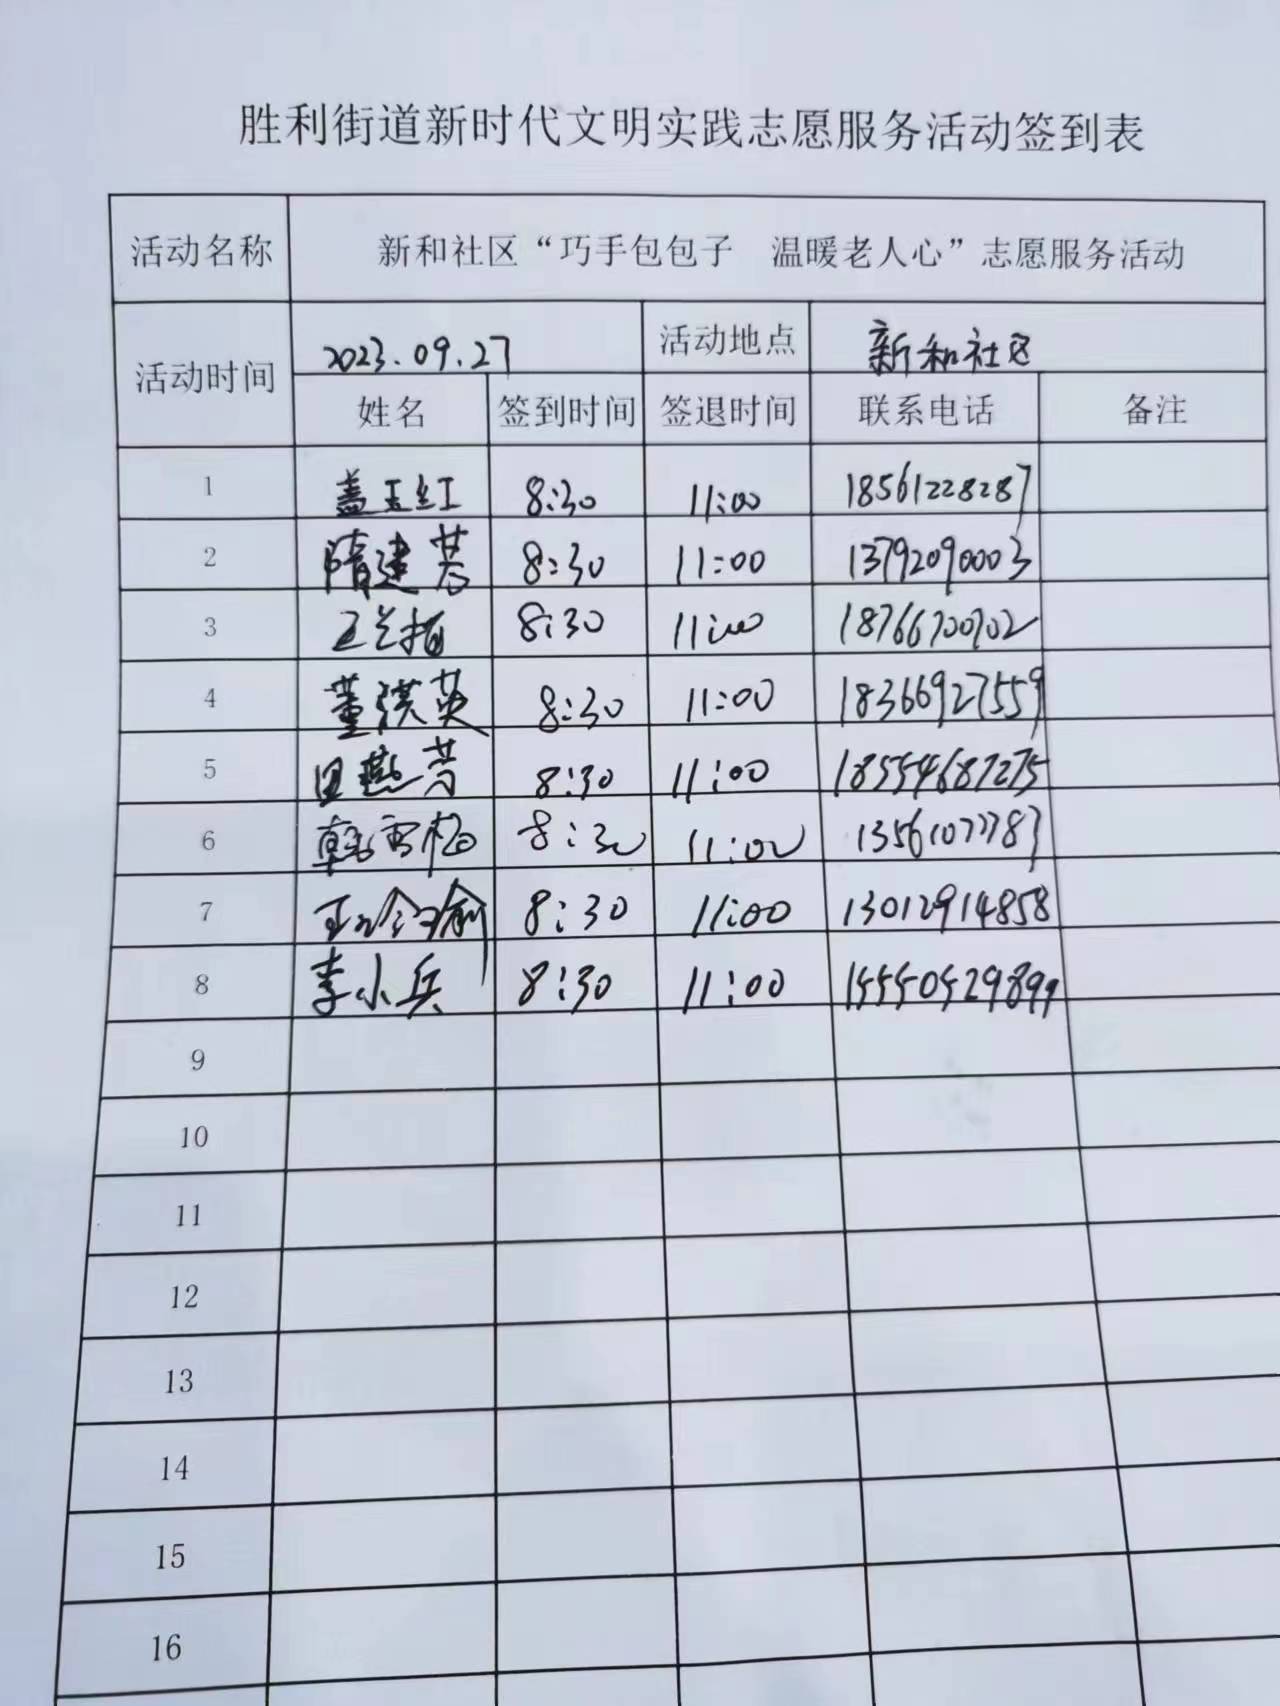 胜利街道新时代文明实践志愿服务活动签到表
活动名称 新和社区“巧手包包子 温暖老人心”志愿服务活动
活动时间 2023.09.27 活动地点 新和社区
姓名 签到时间 签退时间 联系电话 备注
1 盖玉红 8:30 11:00 18561228287
2 隋建芸 8:30 11:00 13792090003
3 王兰 8:30 11:00 18766700702
4 董洪英 8:30 11:00 18366927559
5 田燕芳 8:30 11:00 18554687275
6 韩雪梅 8:30 11:00
7 8:30 11:00 13012914858
8 李小兵 8:30 11:00 15550529899
9
10
11
12
13
14
15
16